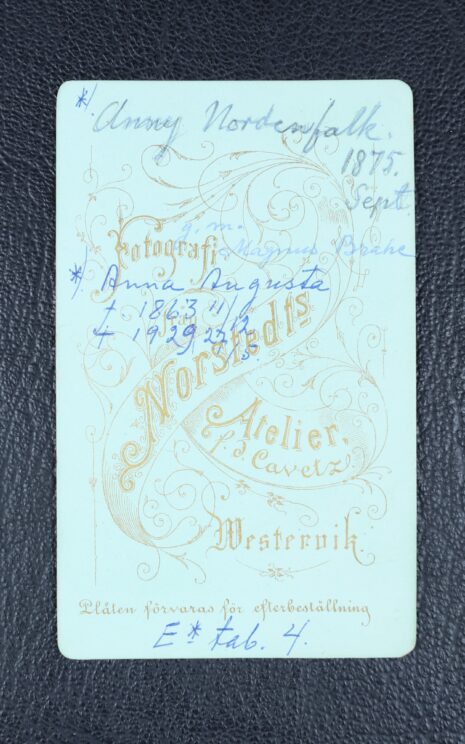 */ Anny Nordenfalk.
1875.
Sept.
g. m.
Magnus Brahe
Fotografi
från
*/ Anna Augusta
† 1863 11/12
† 1929 23/5
Norstedts
Atelier,
f. d. Cavetz
Westervik.
Plåten förvaras för efterbeställning
E* tab. 4.